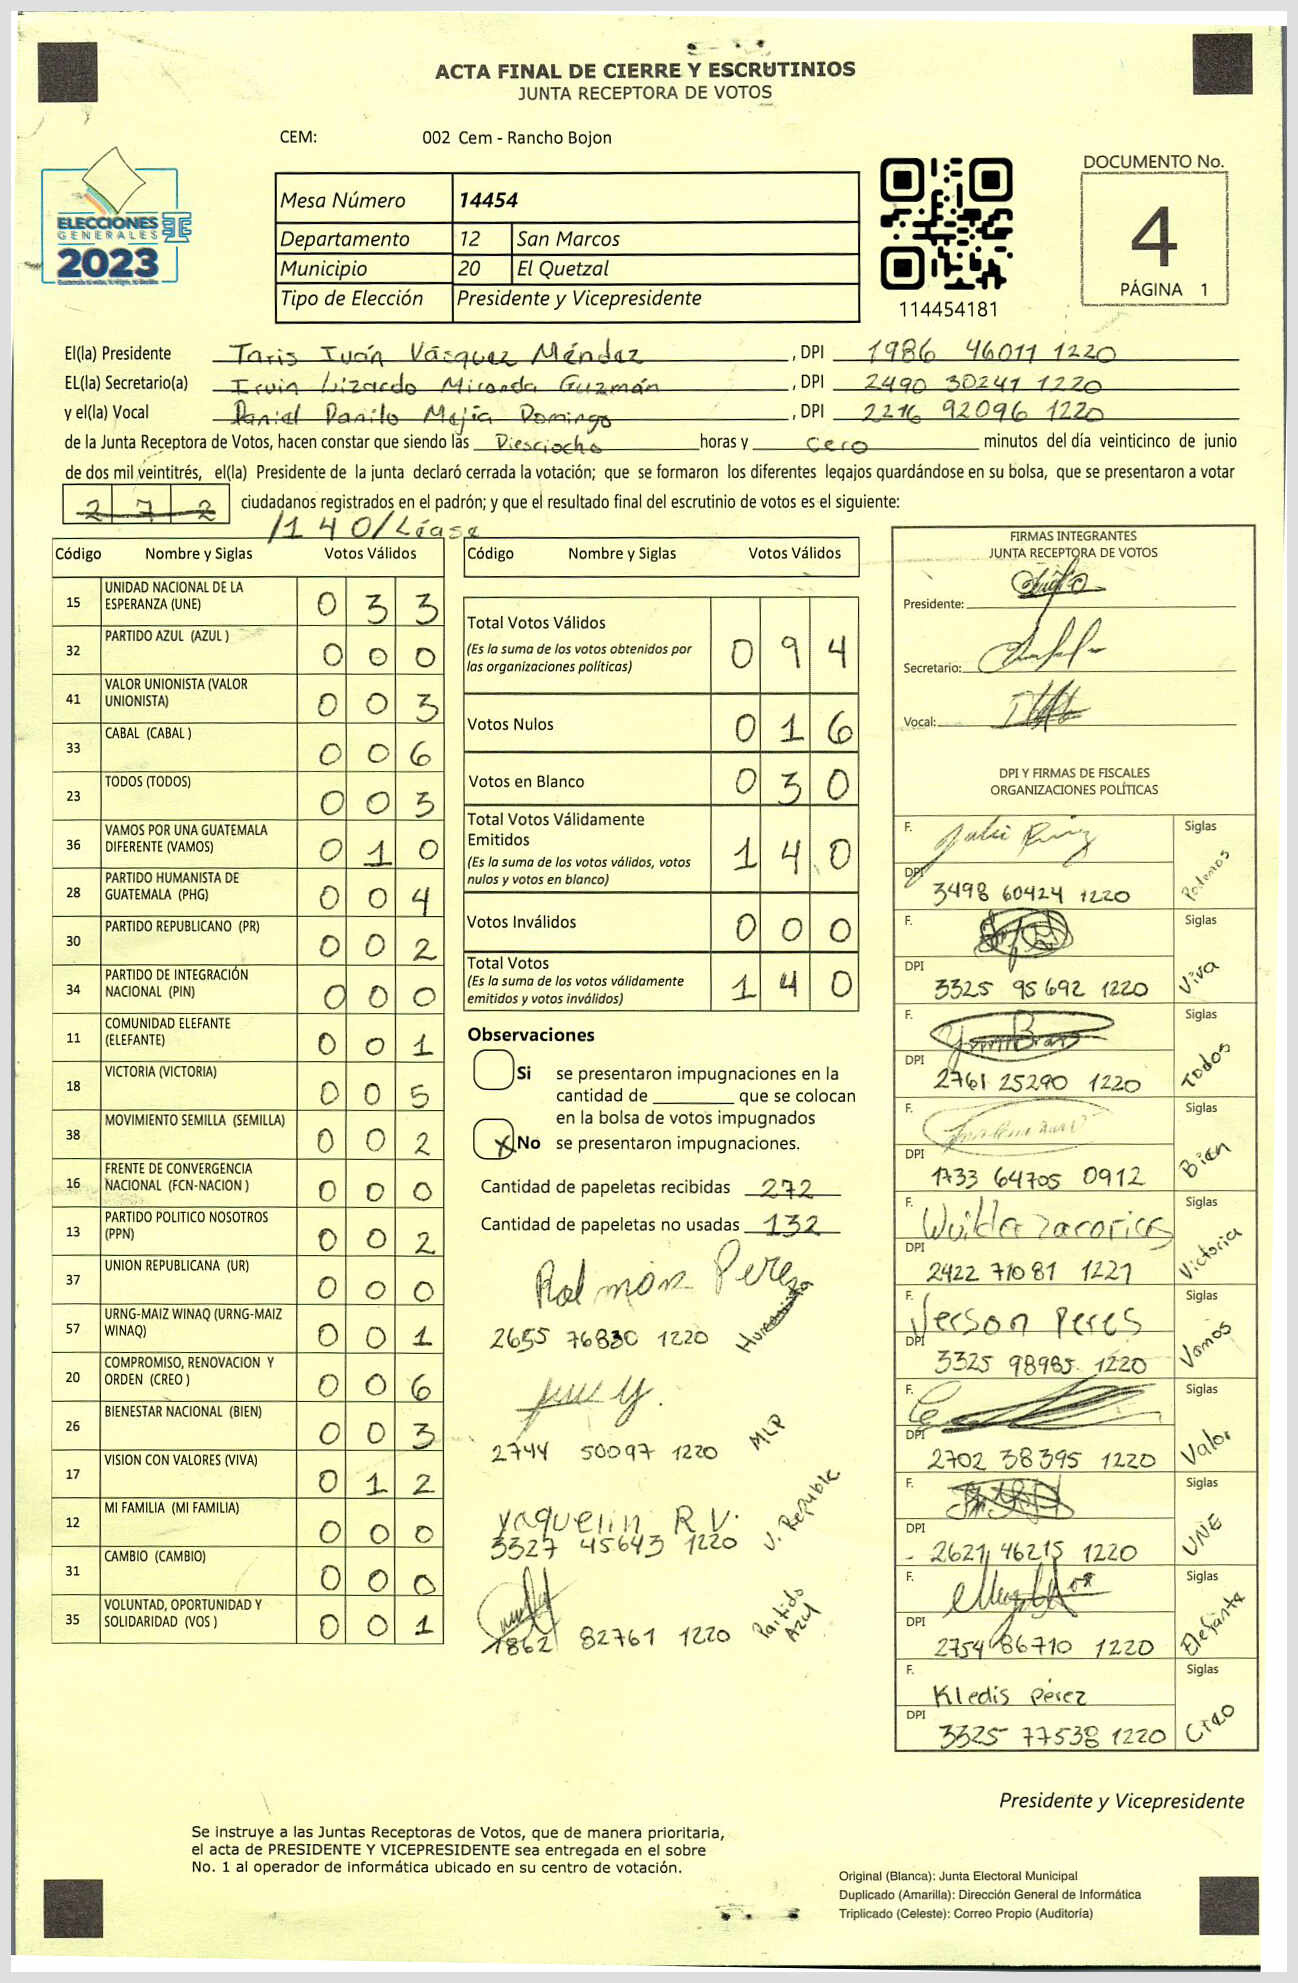 ACTA FINAL DE CIERRE Y ESCRUTINIOS
JUNTA RECEPTORA DE VOTOS
CEM: 002 Cem - Rancho Bojon
ELECCIONES
GENERALES
2023
Mesa Número 14454
Departamento 12 San Marcos
Municipio 20 El Quetzal
Tipo de Elección Presidente y Vicepresidente
114454181
DOCUMENTO No.
4
PÁGINA 1
El(la) Presidente Taris Iván Vásquez Méndez, DPI 1986 46011 1220
EL(la) Secretario(a) Irvin Lizardo Miranda Guzmán, DPI 2490 30241 1220
y el(la) Vocal Daniel Danilo Mejía Domingo, DPI 2216 92096 1220
de la Junta Receptora de Votos, hacen constar que siendo las Diesciocho horas y cero minutos del día veinticinco de junio
de dos mil veintitrés, el(la) Presidente de la junta declaró cerrada la votación; que se formaron los diferentes legajos quardándose en su bolsa, que se presentaron a votar
272 ciudadanos registrados en el padrón; y que el resultado final del escrutinio de votos es el siguiente:
/140/Léase
Código Nombre y Siglas Votos Válidos
15 UNIDAD NACIONAL DE LA ESPERANZA (UNE) 0 3 3
32 PARTIDO AZUL (AZUL ) 0 0 0
41 VALOR UNIONISTA (VALOR UNIONISTA) 0 0 3
33 CABAL (CABAL ) 0 0 6
23 TODOS (TODOS) 0 0 3
36 VAMOS POR UNA GUATEMALA DIFERENTE (VAMOS) 0 1 0
28 PARTIDO HUMANISTA DE GUATEMALA (PHG) 0 0 4
30 PARTIDO REPUBLICANO (PR) 0 0 2
34 PARTIDO DE INTEGRACIÓN NACIONAL (PIN) 0 0 0
11 COMUNIDAD ELEFANTE (ELEFANTE) 0 0 1
18 VICTORIA (VICTORIA) 0 0 5
38 MOVIMIENTO SEMILLA (SEMILLA) 0 0 2
16 FRENTE DE CONVERGENCIA NACIONAL (FCN-NACION ) 0 0 0
13 PARTIDO POLITICO NOSOTROS (PPN) 0 0 2
37 UNION REPUBLICANA (UR) 0 0 0
57 URNG-MAIZ WINAQ (URNG-MAIZ WINAQ) 0 0 1
20 COMPROMISO, RENOVACION Y ORDEN (CREO ) 0 0 6
26 BIENESTAR NACIONAL (BIEN) 0 0 3
17 VISION CON VALORES (VIVA) 0 1 2
12 MI FAMILIA (MI FAMILIA) 0 0 0
31 CAMBIO (CAMBIO) 0 0 0
35 VOLUNTAD, OPORTUNIDAD Y SOLIDARIDAD (VOS ) 0 0 1
Código Nombre y Siglas Votos Válidos
Total Votos Válidos 0 9 4
(Es la suma de los votos obtenidos por
las organizaciones políticas)
Votos Nulos 0 1 6
Votos en Blanco 0 3 0
Total Votos Válidamente
Emitidos 1 4 0
(Es la suma de los votos válidos, votos
nulos y votos en blanco)
Votos Inválidos 0 0 0
Total Votos 1 4 0
(Es la suma de los votos válidamente
emitidos y votos inválidos)
Observaciones
Si se presentaron impugnaciones en la
cantidad de ________ que se colocan
en la bolsa de votos impugnados
X No se presentaron impugnaciones.
Cantidad de papeletas recibidas 272
Cantidad de papeletas no usadas 132
Ralmon Perez
2655 76830 1220 Humanista
2744 50097 1220 MLP
Yaquelin R V.
3327 45643 1220 U. Republic.
1862 82761 1220 Partido Azul
FIRMAS INTEGRANTES
JUNTA RECEPTORA DE VOTOS
Presidente:
Secretario:
Vocal:
DPI Y FIRMAS DE FISCALES
ORGANIZACIONES POLÍTICAS
F. Siglas
DPI 3498 60424 1220
F. Siglas Viva
DPI 3325 95692 1220
F. Siglas Todos
DPI 2761 25290 1220
F. Siglas Bien
DPI 1733 64705 0912
F. Wuilder Zacarias Siglas Victoria
DPI 2422 71081 1221
F. Jerson Peres Siglas Vamos
DPI 3325 98985 1220
F. Siglas Valor
DPI 2702 38395 1220
F. Siglas UNE
DPI 2621 46215 1220
F. Siglas Elefante
DPI 2754 86710 1220
F. Kledis Pérez Siglas
DPI 3325 77538 1220
Presidente y Vicepresidente
Se instruye a las Juntas Receptoras de Votos, que de manera prioritaria,
el acta de PRESIDENTE Y VICEPRESIDENTE sea entregada en el sobre
No. 1 al operador de informática ubicado en su centro de votación.
Original (Blanca): Junta Electoral Municipal
Duplicado (Amarilla): Dirección General de Informática
Triplicado (Celeste): Correo Propio (Auditoría)